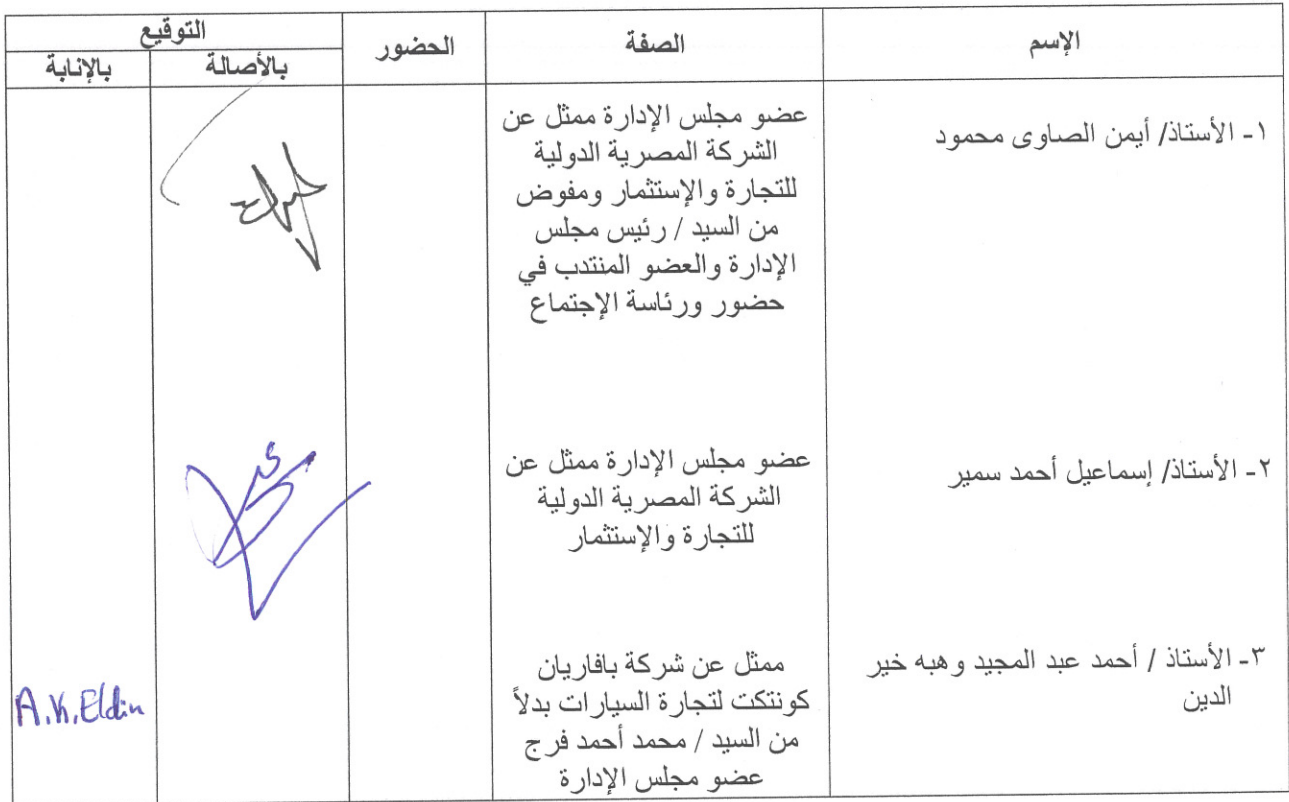 الإسم
الصفة
الحضور
التوقيع
بالأصالة
بالإنابة
١- الأستاذ/ أيمن الصاوى محمود
عضو مجلس الإدارة ممثل عن
الشركة المصرية الدولية
للتجارة والإستثمار ومفوض
من السيد / رئيس مجلس
الإدارة والعضو المنتدب في
حضور ورئاسة الإجتماع
٢- الأستاذ/ إسماعيل أحمد سمير
عضو مجلس الإدارة ممثل عن
الشركة المصرية الدولية
للتجارة والإستثمار
٣- الأستاذ / أحمد عبد المجيد وهبه خير
الدين
ممثل عن شركة بافاريان
كونتكت لتجارة السيارات بدلاً
من السيد / محمد أحمد فرج
عضو مجلس الإدارة
A.K.Eldin